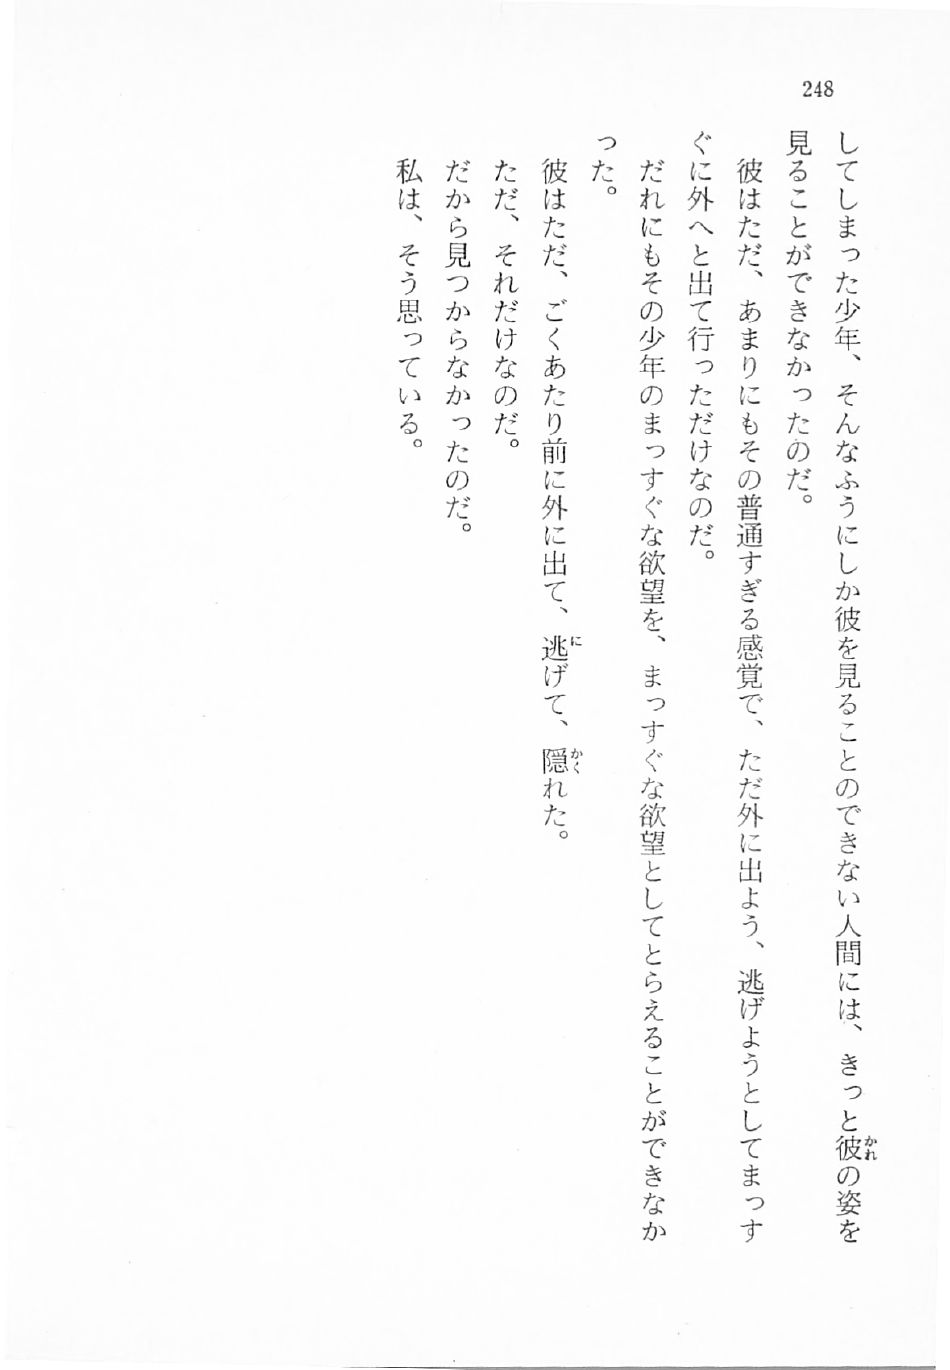 248
してしまった少年、そんなふうにしか彼を見ることのできない人間には、きっと彼の姿を
見ることができなかったのだ。
彼はただ、あまりにもその普通すぎる感覚で、ただ外に出よう、逃げようとしてまっす
ぐに外へと出て行っただけなのだ。
だれにもその少年のまっすぐな欲望を、まっすぐな欲望としてとらえることができなか
った。
彼はただ、ごくあたり前に外に出て、逃げて、隠れた。
ただ、それだけなのだ。
だから見つからなかったのだ。
私は、そう思っている。